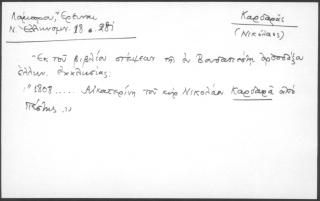 Λάμπρου, Ἔρευναι
Ν. Ἑλληνομν. 18 σ. 281
Καρδαρᾶς
(Νικόλαος)
Ἐκ τοῦ βιβλίου στέψεων τῆς ἐν Βουδαπέστῃ ὀρθοδόξου
ἑλλην. ἐκκλησίας.
1808..... Αἰκατερίνη τοῦ κὺρ Νικολάου Καρδαρᾶ ἀπὸ
Πέστης